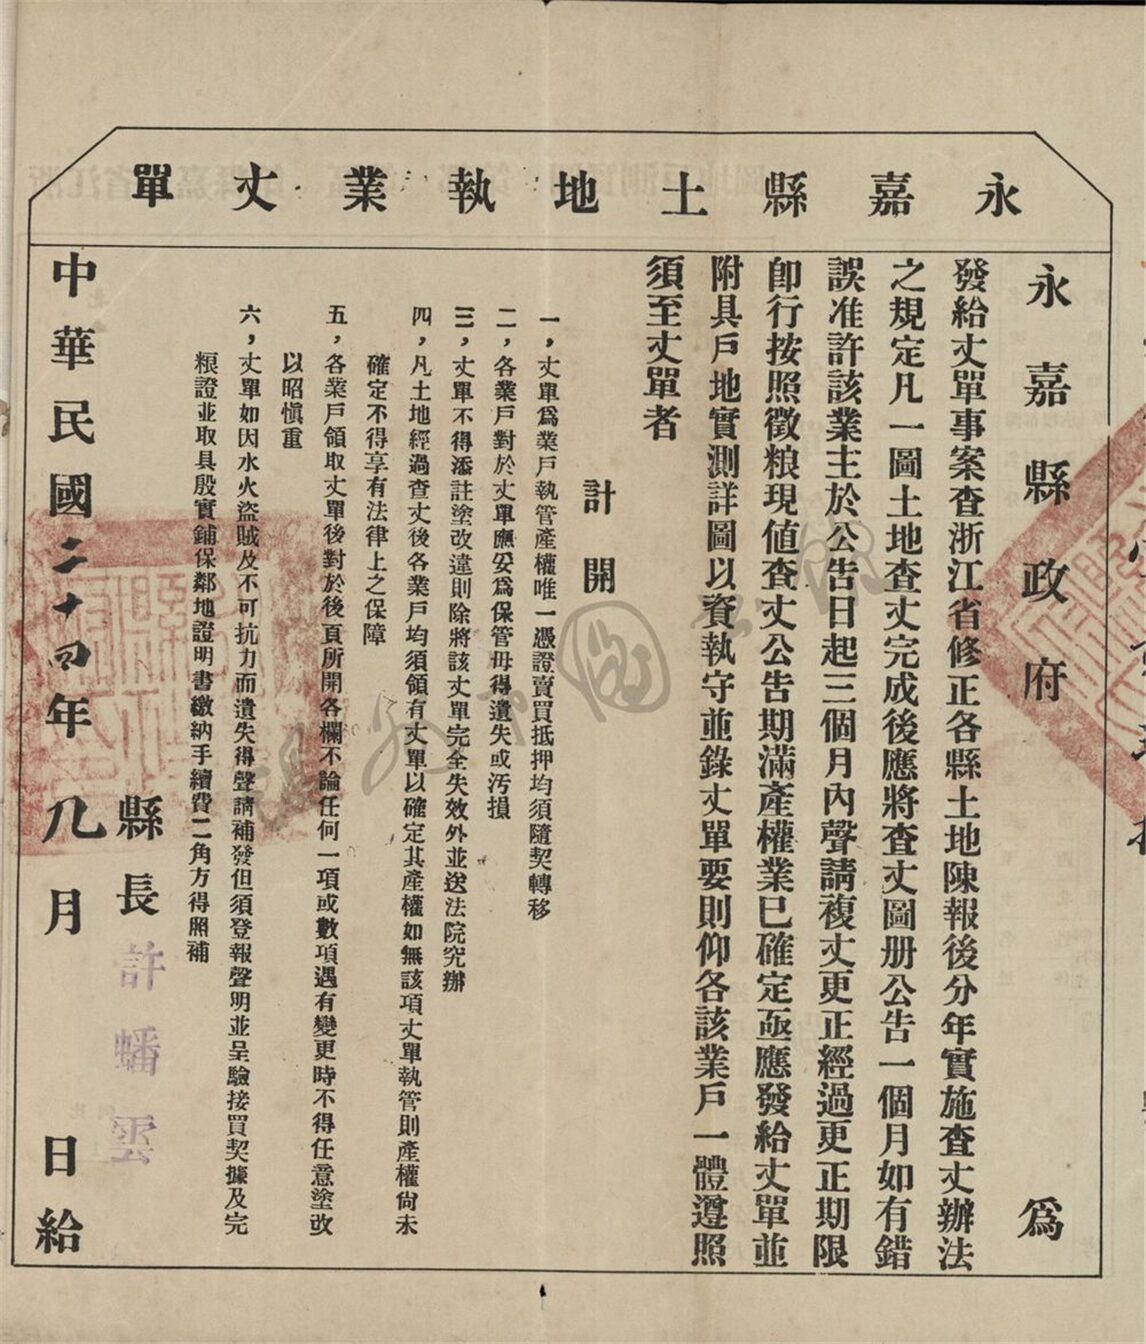 永嘉縣土地執業丈單
永嘉縣政府　爲
發給丈單事案查浙江省修正各縣土地陳報後分年實施查丈辦法
之規定凡一圖土地查丈完成後應將查丈圖册公告一個月如有錯
誤准許該業主於公告日起三個月內聲請複丈更正經過更正期限
卽行按照徵粮現值查丈公告期滿產權業已確定亟應發給丈單並
附具戶地實測詳圖以資執守並錄丈單要則仰各該業戶一體遵照
須至丈單者
計開
一，丈單爲業戶執管產權唯一憑證賣買抵押均須隨契轉移
二，各業戶對於丈單應妥爲保管毋得遺失或污損
三，丈單不得添註塗改違則除將該丈單完全失效外並送法院究辦
四，凡土地經過查丈後各業戶均須領有丈單以確定其產權如無該項丈單執管則產權尙未
確定不得享有法律上之保障
五，各業戶領取丈單後對於後頁所開各欄不論任何一項或數項遇有變更時不得任意塗改
以昭愼重
六，丈單如因水火盜賊及不可抗力而遺失得聲請補發但須登報聲明並呈驗接買契據及完
粮證並取具殷實鋪保鄰地證明書繳納手續費二角方得照補
縣長許蟠雲
中華民國二十四年九月　日給